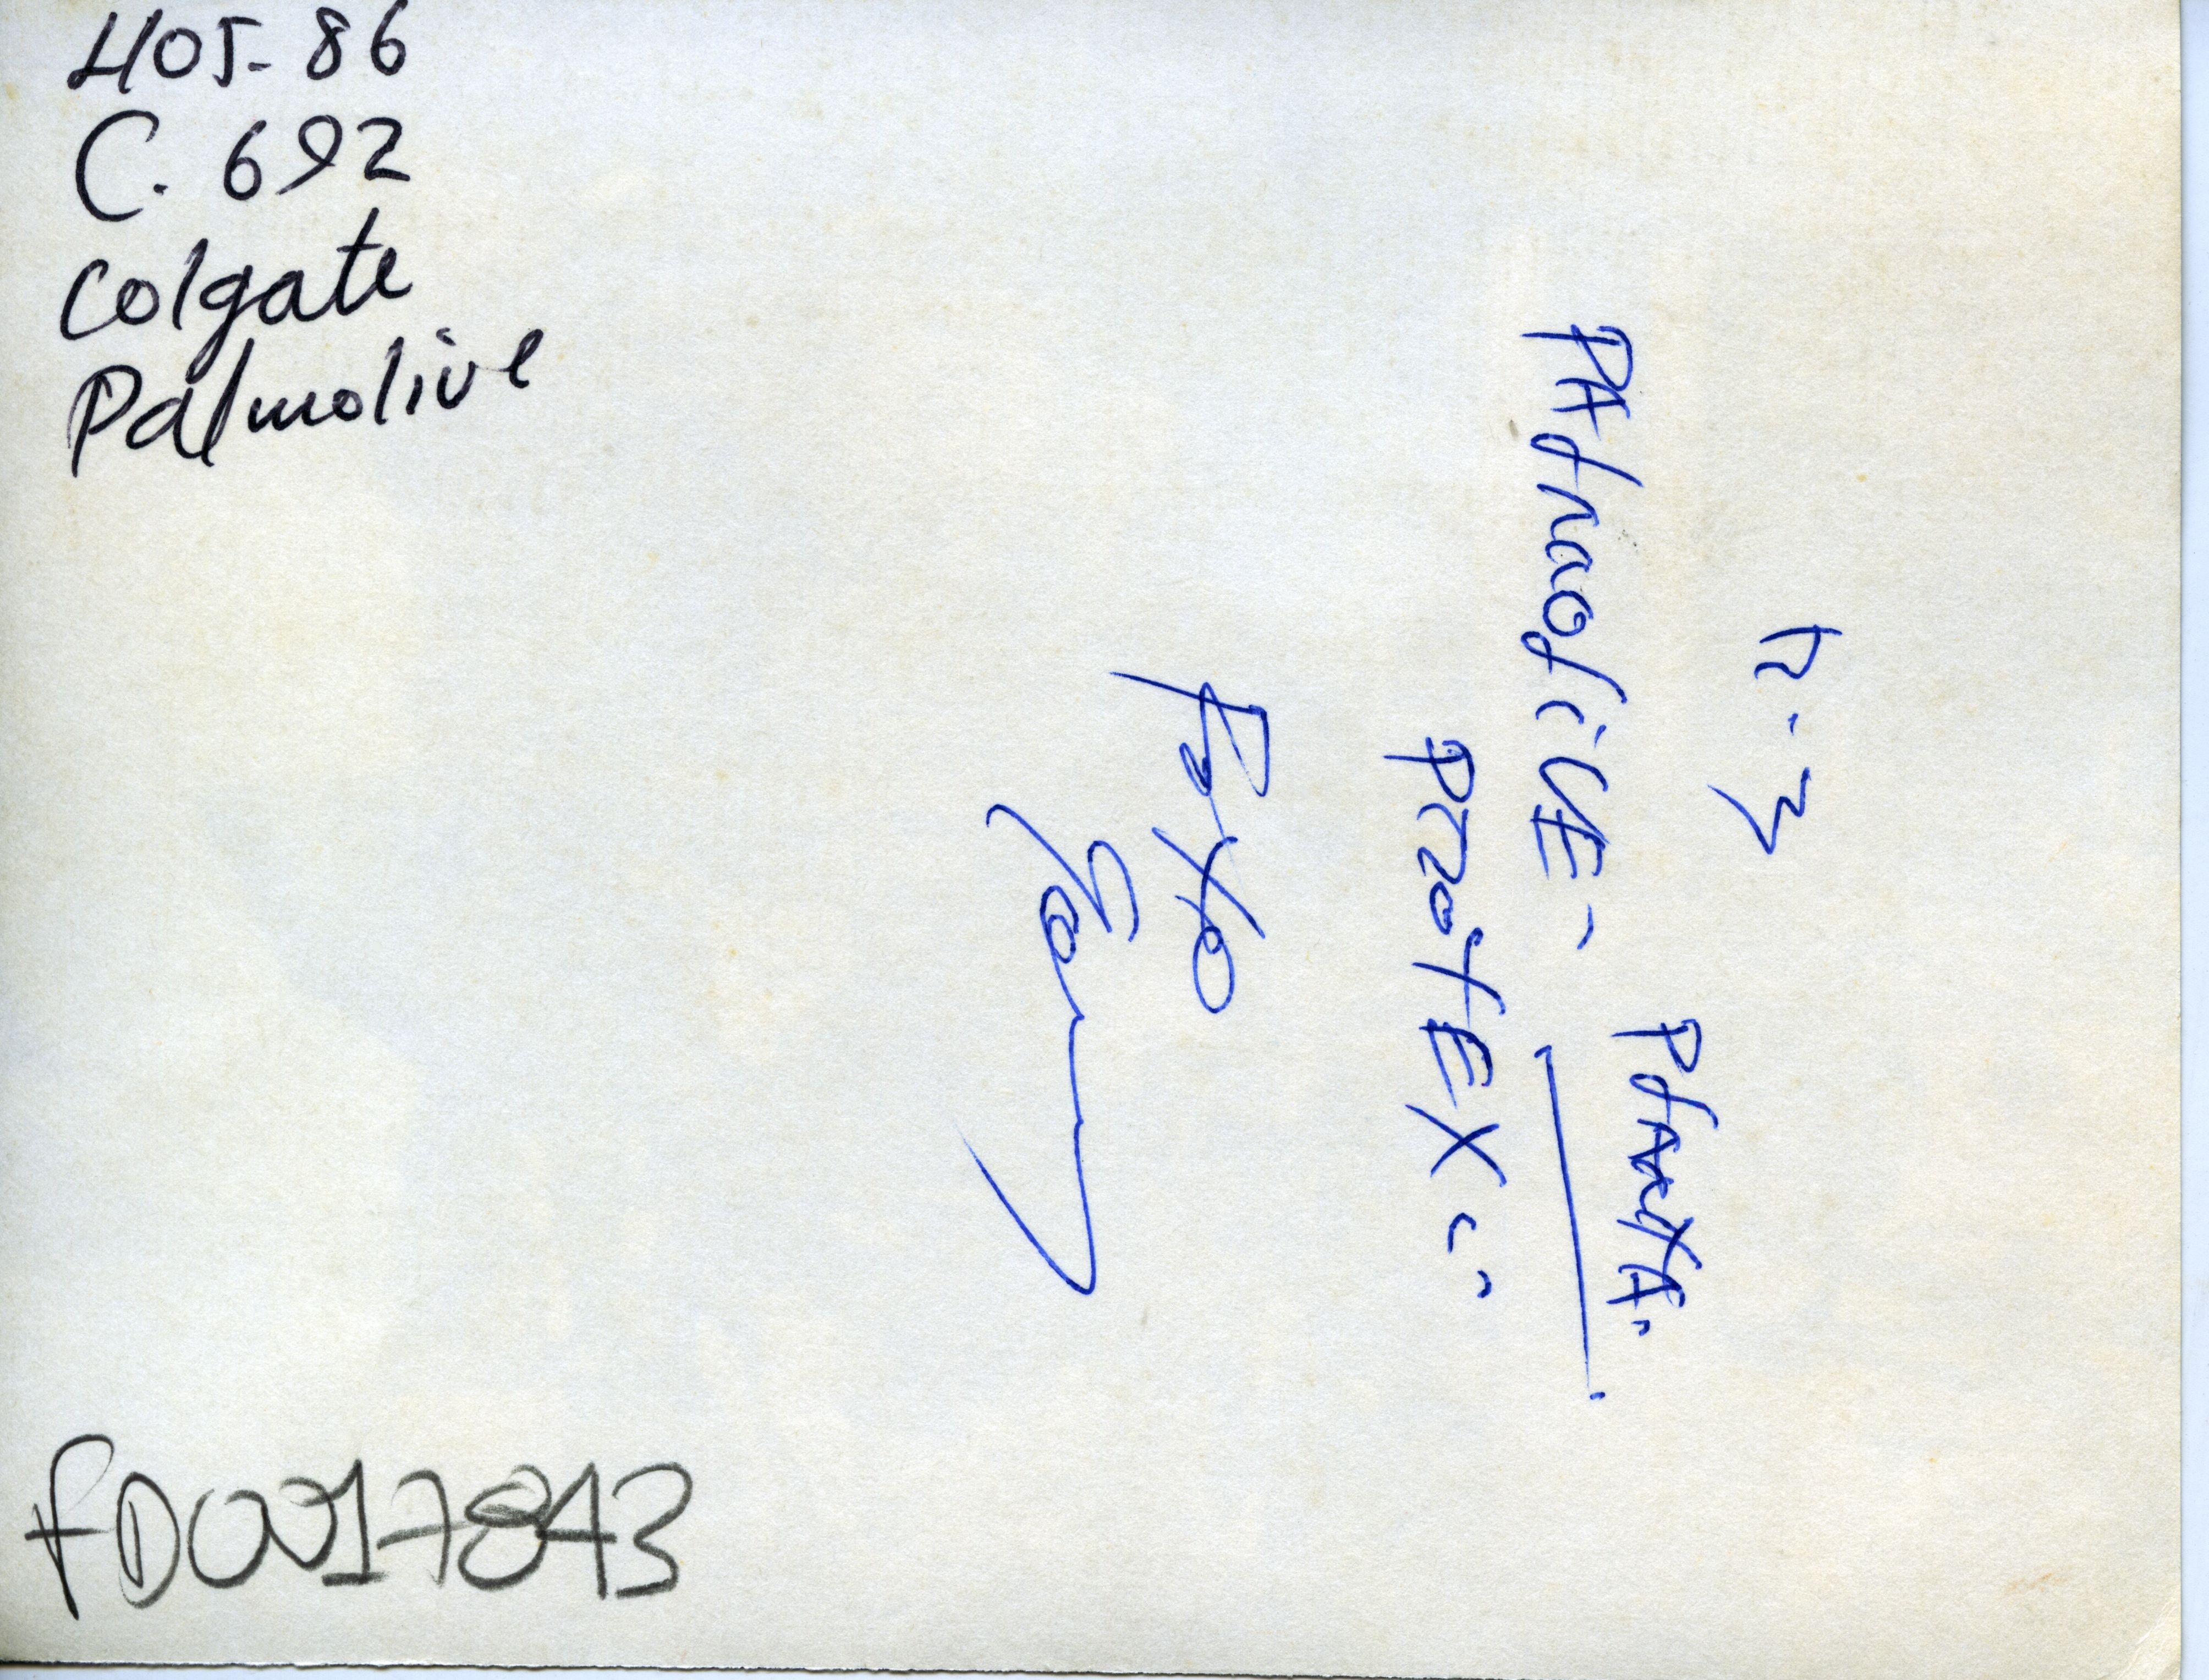 405-86
C. 692
Colgate
Palmolive
PALMOLIVE
PLANTA
PROTEX
FOTO
FD0017843